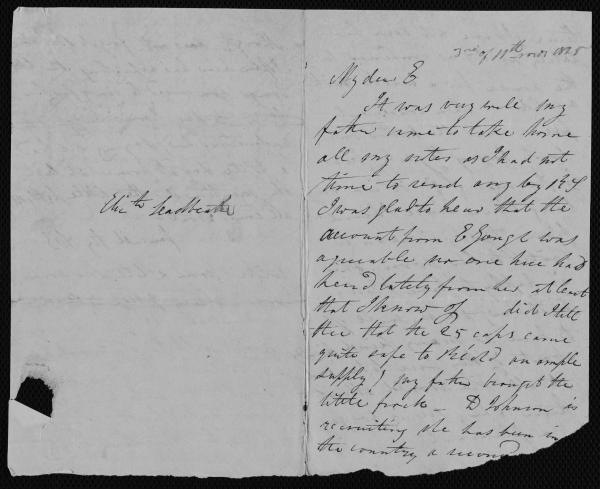 Eliz.th Leadbeater
3rd of 11th mo 1828
My dear E
It was very well my
father came to take home
all my notes as I had not
time to send any by
I was glad to hear that the
account from E Gough was
agreeable no one here had
heard lately from her at least
that I know of did I tell
thee that the 25 caps came
quite safe to an ample
supply! my father brought the
little frock _ D Johnson is
recruiting she has been in
the country a